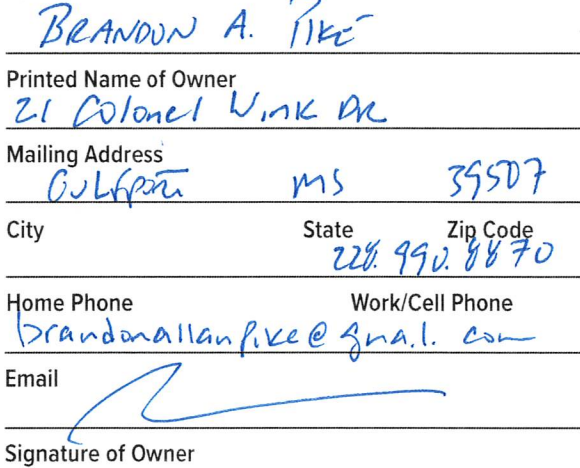 BRANDON A. PIKE
Printed Name of Owner
21 Colonel Wink DR
Mailing Address
GULFPORT MS 39507
City State Zip Code
228.990.8870
Home Phone Work/Cell Phone
brandonallanpike@gmail.com
Email
Signature of Owner